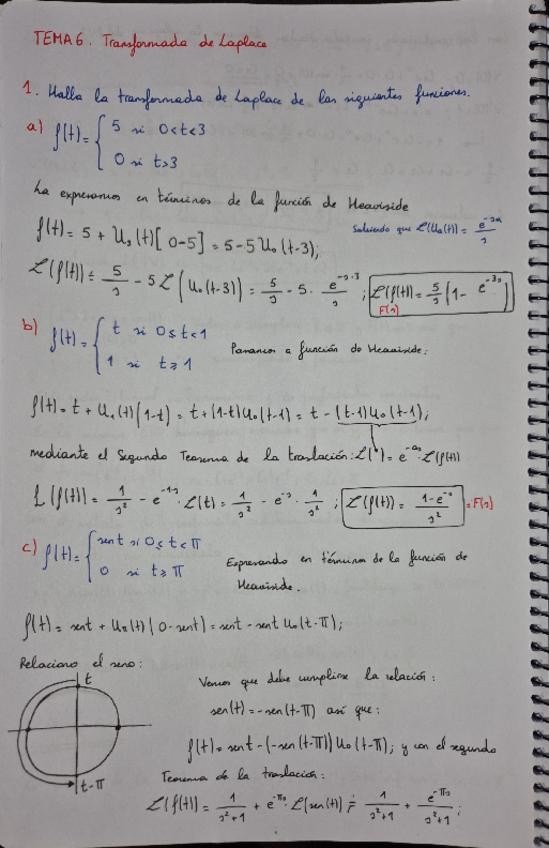 TEMA 6. Transformada de Laplace
1. Halla la transformada de Laplace de las siguientes funciones.
a) f(t) = { 5 si 0<t<3
0 si t>3
La expresamos en términos de la función de Heaviside
f(t) = 5 + U₃(t)[0-5] = 5 - 5U₀(t-3);
Sabiendo que L(Uₐ(t)) = e^-sa/s
L(f(t)) = 5/s - 5L(U₀(t-3)) = 5/s - 5 · e^-s·3/s ; L(f(t)) = 5/s (1 - e^-3s)
F(s)
b) f(t) = { t si 0≤t<1
1 si t≥1
Pasamos a función de Heaviside:
f(t) = t + U₁(t)(1-t) = t + (1-t)U₀(t-1) = t - (t-1)U₀(t-1);
mediante el Segundo Teorema de la traslación: L( ) = e^-as · L(f(t))
L(f(t)) = 1/s² - e^-1s · L(t) = 1/s² - e^-s · 1/s² ; L(f(t)) = 1-e^-s/s² = F(s)
c) f(t) = { sent si 0≤t<π
0 si t≥π
Expresando en términos de la función de
Heaviside.
f(t) = sent + Uπ(t)(0 - sent) = sent - sent U₀(t-π);
Relaciono el seno:
t
t-π
Vemos que debe cumplirse la relación:
sen(t) = -sen(t-π) así que:
f(t) = sent - (-sen(t-π))U₀(t-π); y con el segundo
Teorema de la traslación:
L(f(t)) = 1/s²+1 + e^-πs · L(sen(t)) = 1/s²+1 + e^-πs/s²+1 ;